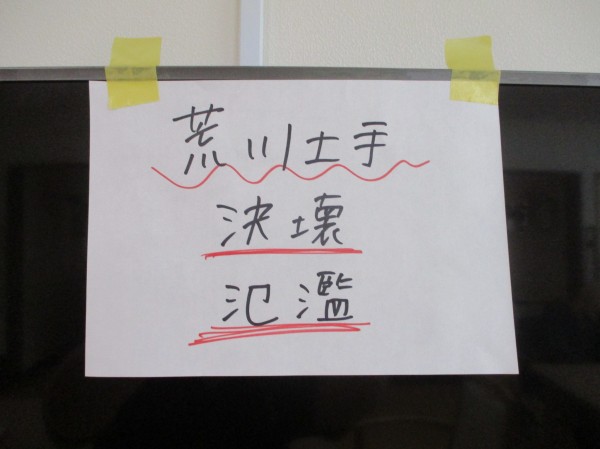 荒川土手
決壊
氾濫